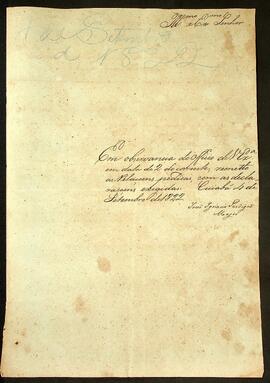 Illmo. e Exmo. Senhor
4 de Setembro
de 1822
Em observancia do Officio de V. Exª
em data de 2 do corrente, remetto
as Relaçoens pedidas com as decla
raçoens exigidas. Cuiabá 4 de
Setembro de 1822
José Ignacio